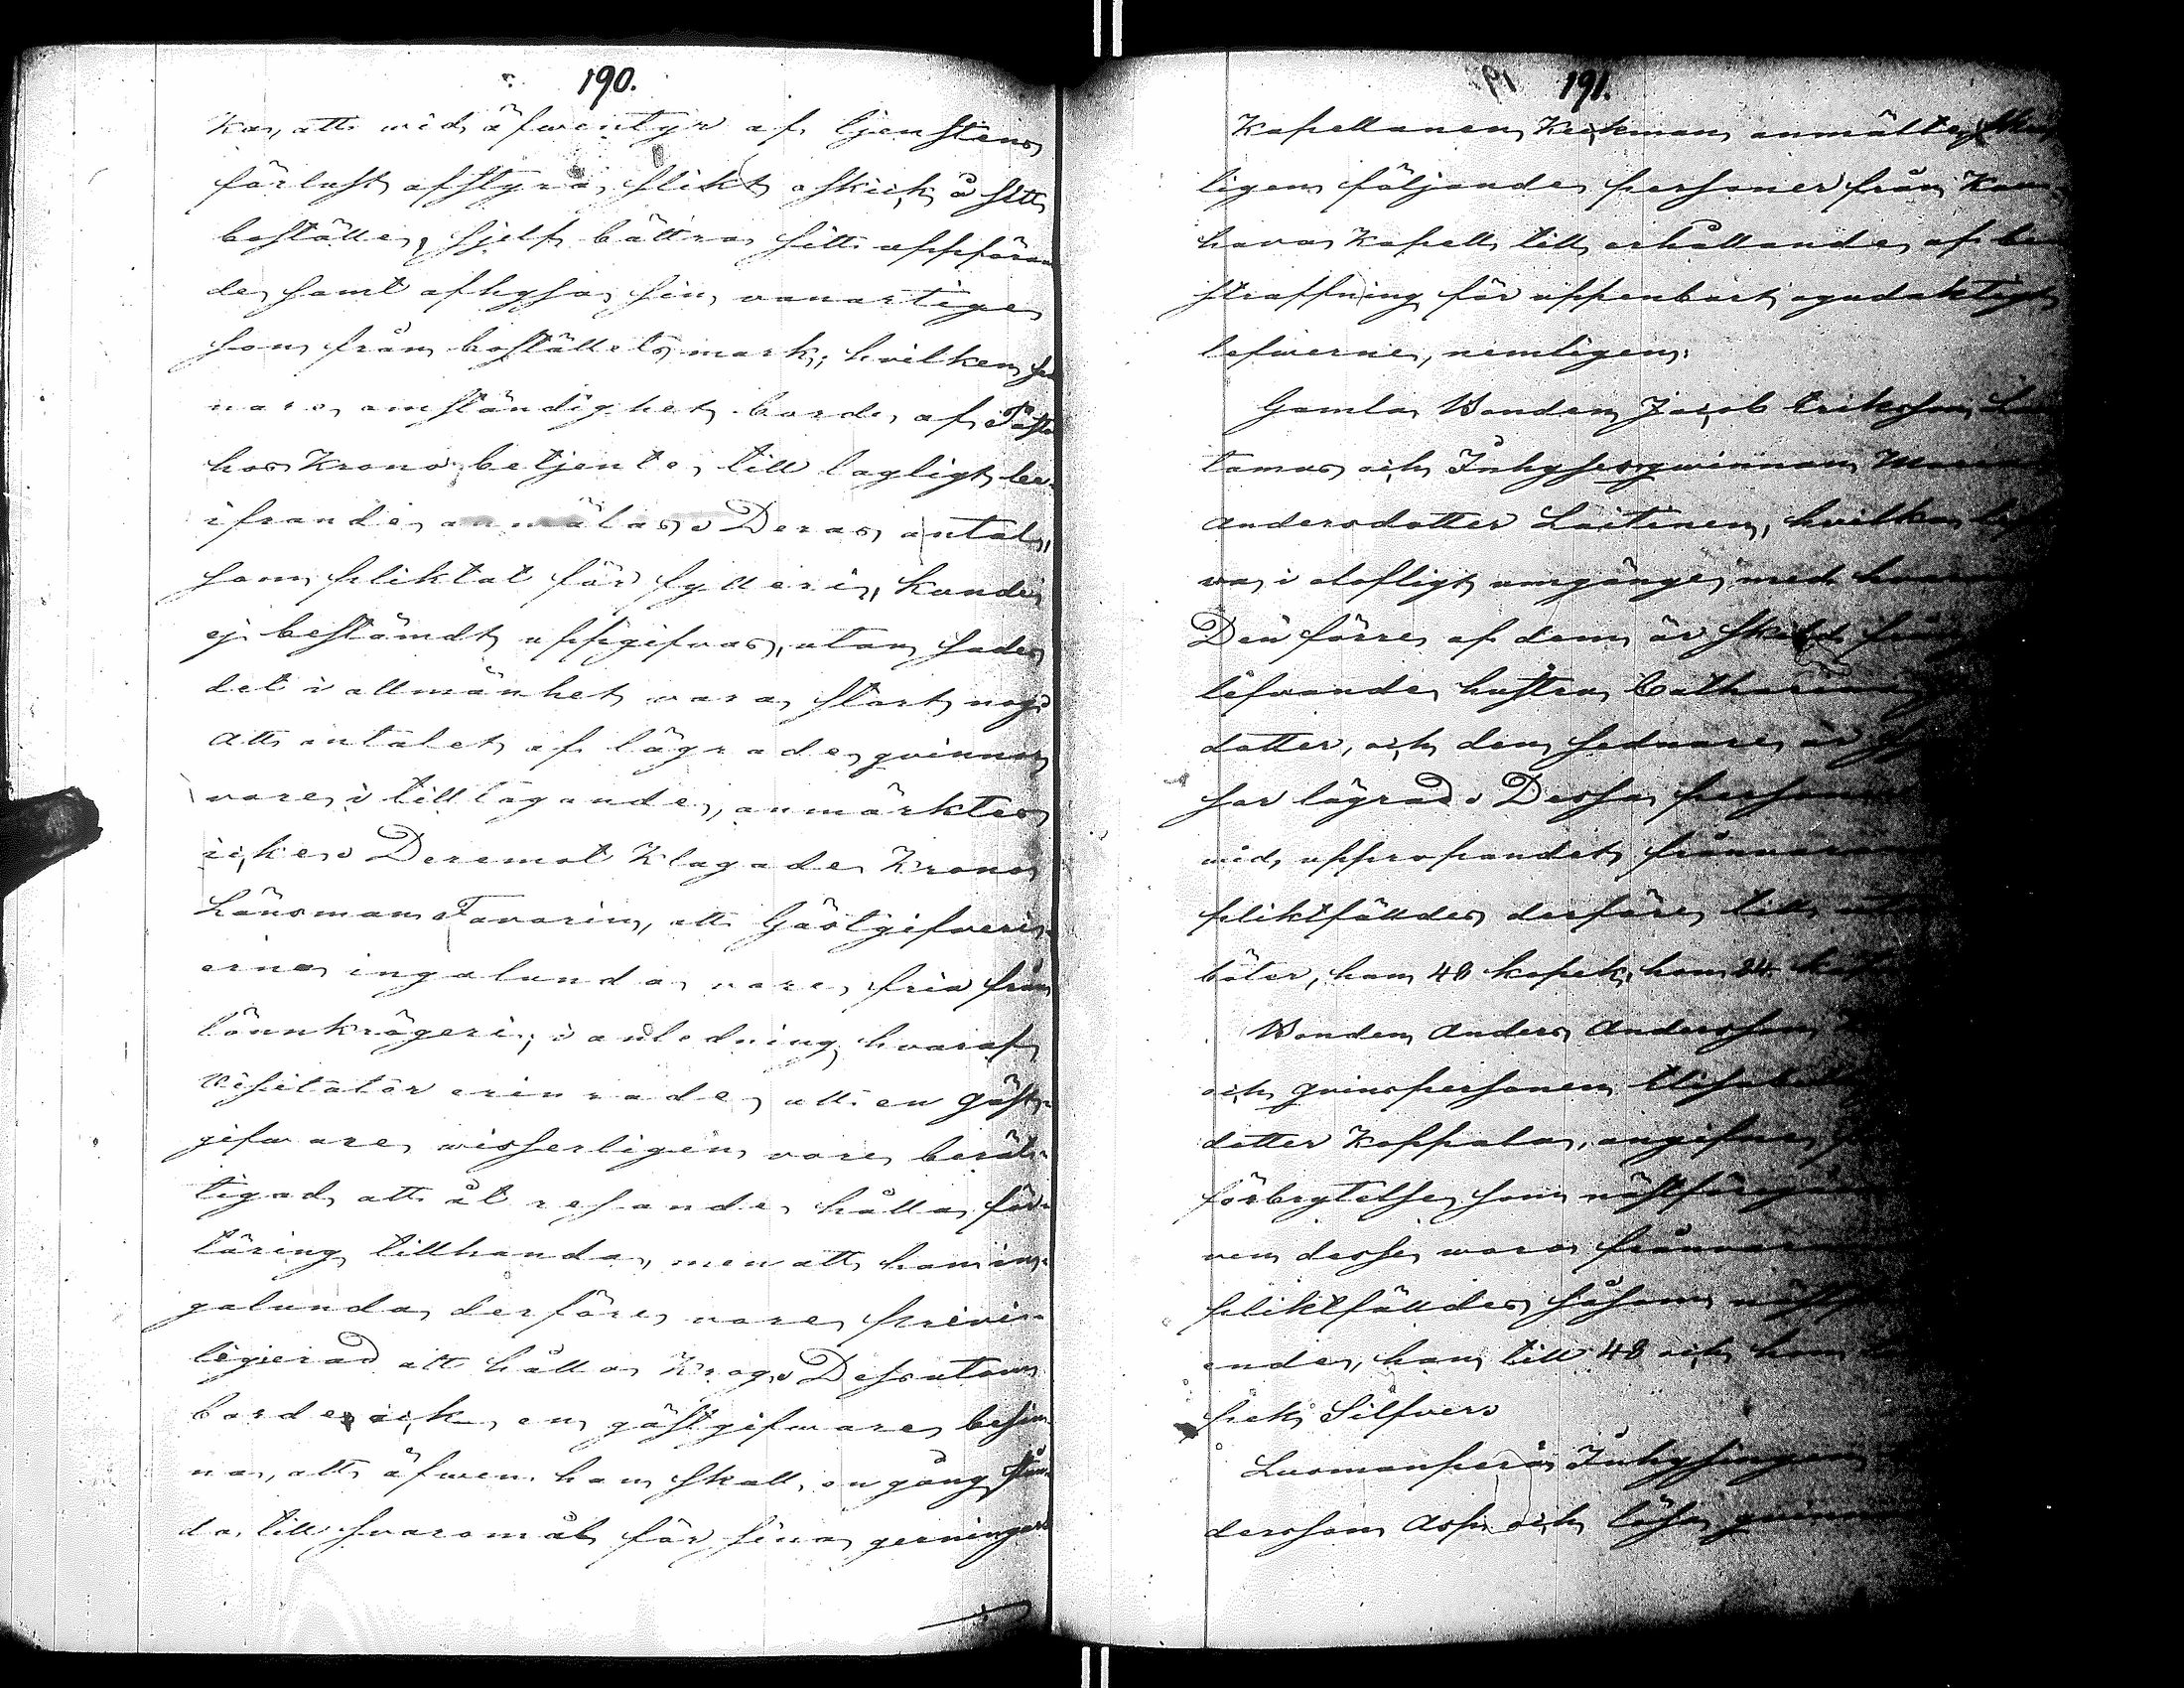 190.
kar, att vid äfwentyr af tjenstens
förlust afstyra slikt oskick å sitt
boställe, sjelf bättra sitt upföran
de, samt afhysa sin vanartige
son från boställets mark; hvilken sed
nare omständighet borde af
hos Krono betjente till lagligt be-
ifrande anmälas. Deras antal,
som pliktat för fylleri, kunde
ej bestämdt uppgifvas, utan sades
det i allmänhet vara stort nog.
Att antalet af lägrade qvinnor
vore i tilltagande, anmärktes
icke. Deremot klagade Krono
Länsman Favorin, att Gästgifveri-
erna ingalunda vore fria från
lönnkrögeri; i anledning hvaraf
Visitator erinrade att en gäst-
gifware wisserligen vore berät-
tigad att åt resande hålla för-
täring tillhanda, men att han in-
galunda derföre vore privi-
legierad att hålla Krog. Dessutom
borde ock en gästgifware besin-
na, att äfwen han skall en gång stån-
da till svaromål för sina gerningar
191.
Kapellanen Krekman anmälte
ligen följande personer från
hava Kapell till erhållande af be
straffning för uppenbart ogudaktigt
lefwerne, nemligen:
Gamla Bonden Jacob Eriksson
tamus och Inhysesqwinnan
Andersdotter Laitinen, hvilka lef
va i olofligt umgänge med hvar
Den förre af dem är skild från
lefvande hustru Catharina
dotter, och den sednare är
har lägrad. Dessa personer
vid uppropandet frånvarande
pliktfälldes derföre till
böter, han 48 kopek, hon 24 kop
Bonden Anders Andersson
och qvinspersonen Elisabeth
dotter Koppala, angifne
förbrytelse som nästföreg
ven desse woro frånvar
pliktfälldes såsom nästf
ende, han till 48 och hon
pek Silfver.
Lusmanperä Inhysingen
dersson Asp och lösa qvinn